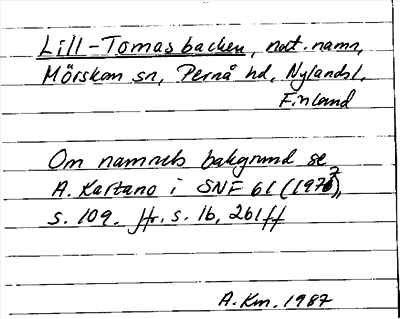 Lill-Tomasbacken, nat.namn,
Mörskom sn, Pernå hd, Nylands l,
Finland
Om namnets bakgrund se
A. Kartano i SNF 61 (1977),
s. 109. Jfr. s. 16, 261 ff
A.Km. 1987